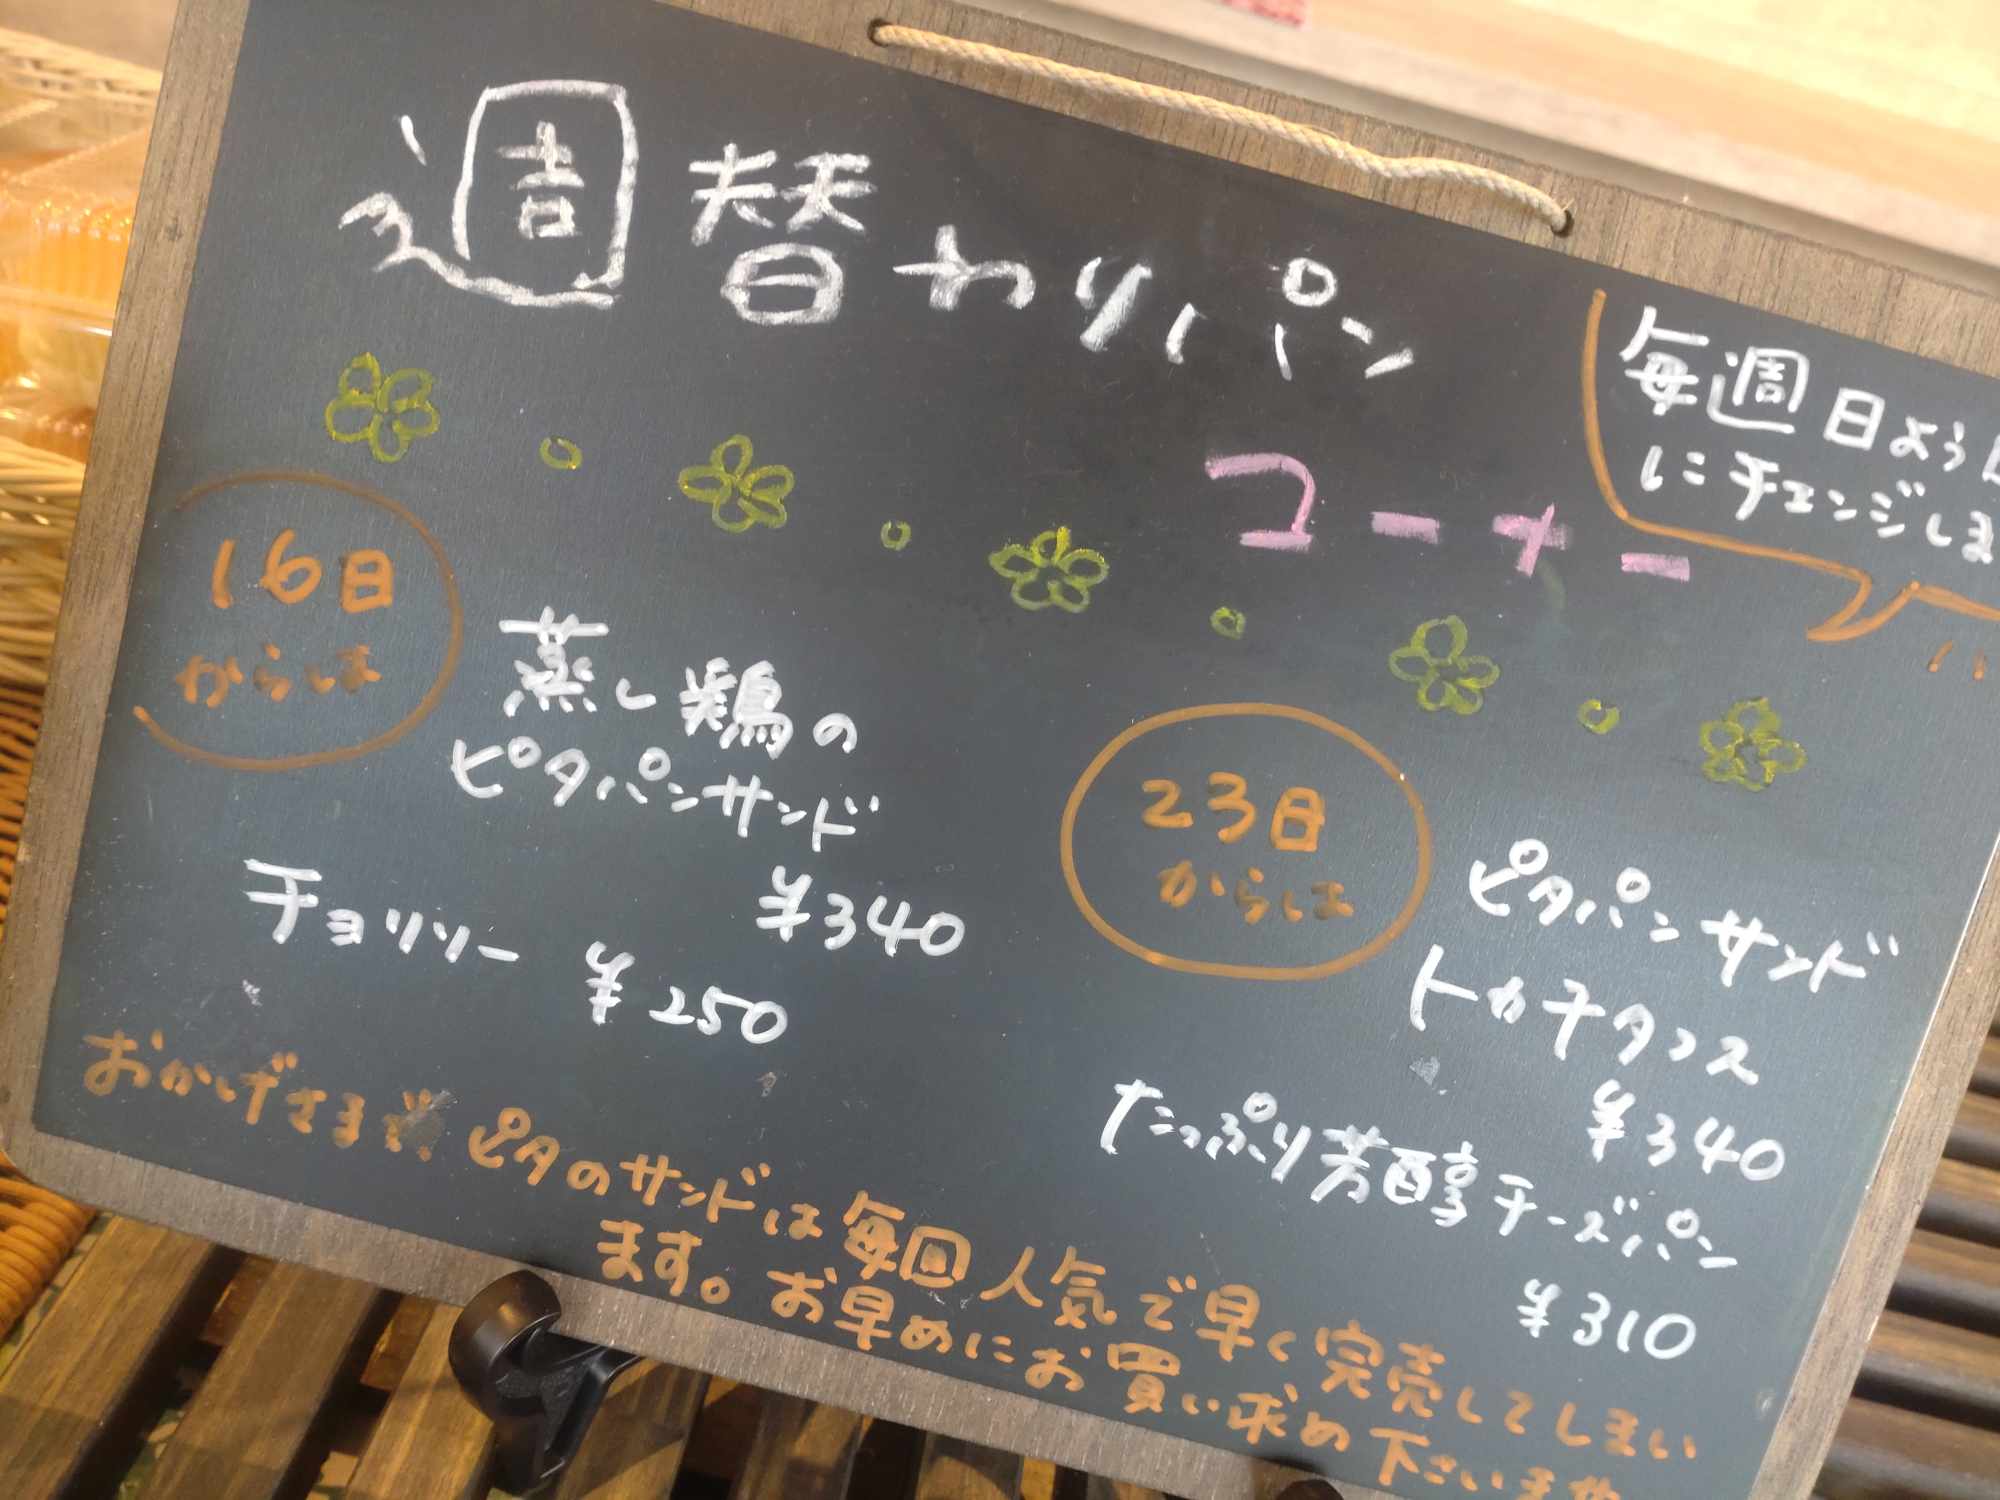 週替わりパン
コーナー
毎週日よう
にチェンジしま
16日
からは
蒸し鶏の
ピタパンサンド
¥340
チョリソー ¥250
23日
からは
ピタパンサンド
トカチタコス
¥340
たっぷり芳醇チーズパン
¥310
おかげさまで ピタのサンドは毎回人気で早く完売してしまい
ます。お早めにお買い求め下さいませ